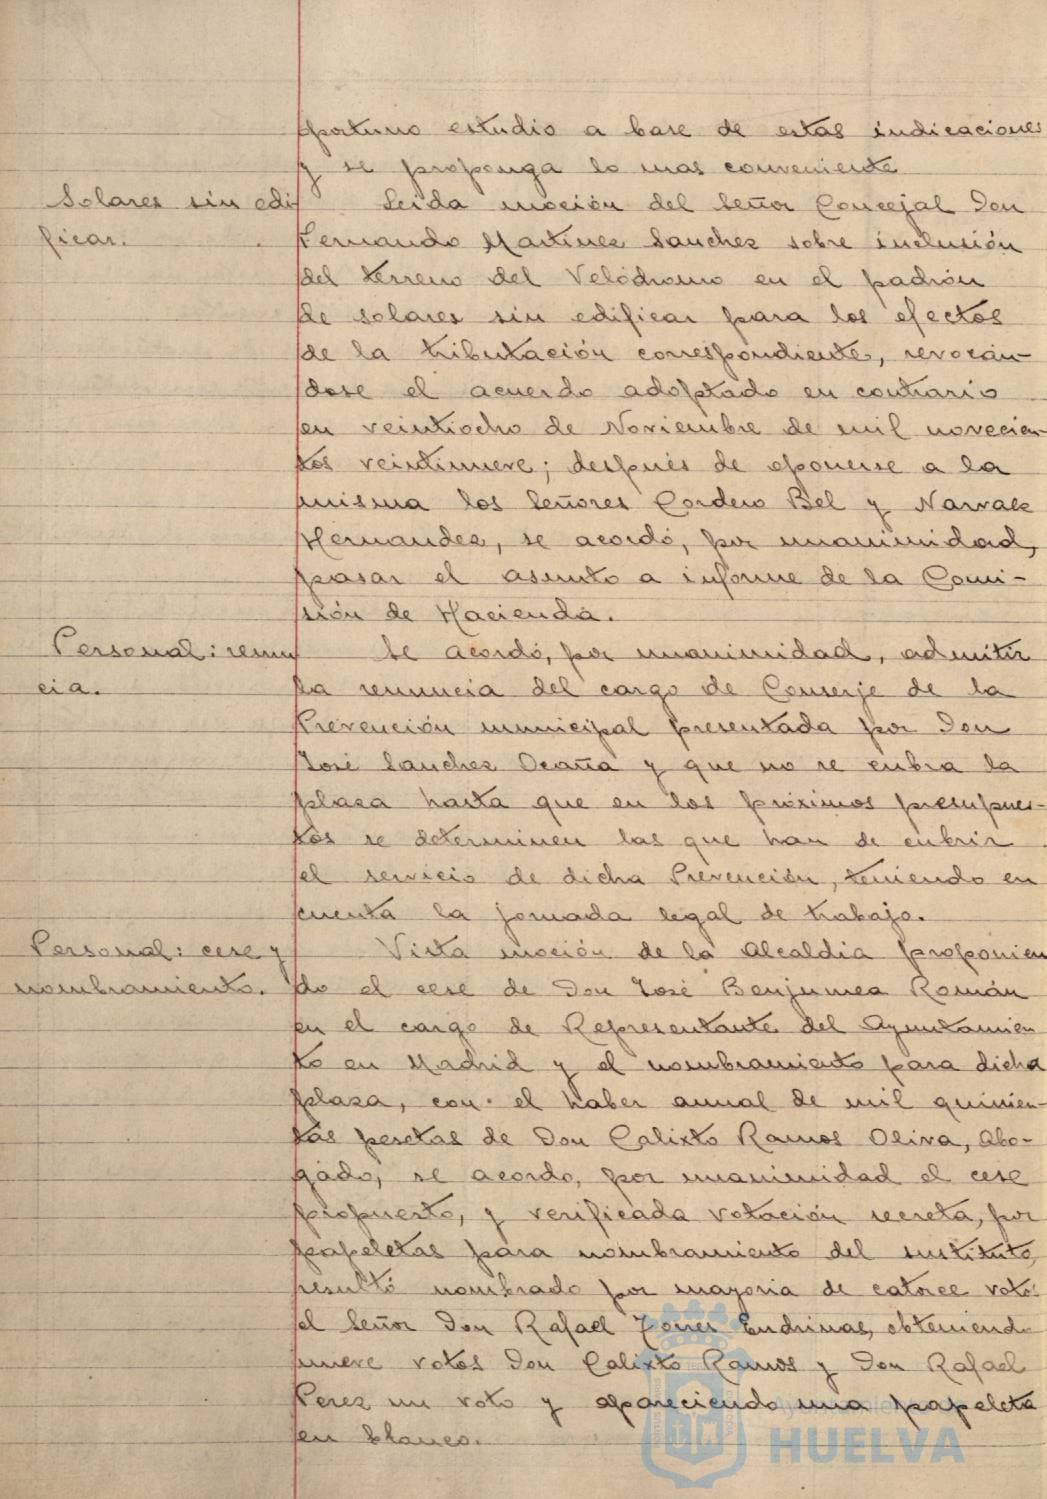 oportuno estudio a base de estas indicaciones
y se proponga lo mas conveniente
Solares sin edi
ficar.
Leida moción del Señor Concejal Don
Fernando Martinez Sanchez sobre inclusión
del terreno del Velódromo en el padrón
de solares sin edificar para los efectos
de la tributación correspondiente, revocán-
dose el acuerdo adoptado en contrario
en veintiocho de Noviembre de mil novecien-
tos veintinueve; después de oponerse a la
misma los Señores Cordero Bel y
Hernandez, se acordó, por unanimidad,
pasar el asunto a informe de la Comi-
sión de Hacienda.
Personal: renun
cia.
Se acordó, por unanimidad, admitir
la renuncia del cargo de Conserje de la
Prevención municipal presentada por Don
José Sanchez Ocaña y que no se cubra la
plaza hasta que en los próximos presupues-
tos se determinen las que han de cubrir
el servicio de dicha Prevención, teniendo en
cuenta la jornada legal de trabajo.
Personal: cese y
nombramiento.
Vista moción de la Alcaldia proponien
do el cese de Don José Benjumea Román
en el cargo de Representante del Ayuntamien
to en Madrid y el nombramiento para dicha
plaza, con el haber anual de mil quinien-
tas pesetas de Don Calixto Ramos Oliva, Abo-
gado, se acordo, por unanimidad el cese
propuesto, y verificada votación secreta, por
papeletas para nombramiento del sustituto,
resultó nombrado por mayoria de catorce votos
el Señor Don Rafael Torres Endrinas, obteniendo
nueve votos Don Calixto Ramos y Don Rafael
Perez un voto y apareciendo una papeleta
en blanco.
Ayuntamiento
HUELVA